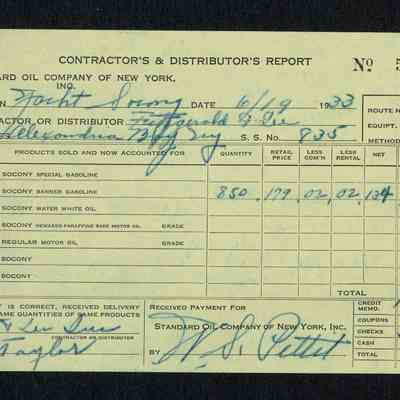 CONTRACTOR'S & DISTRIBUTOR'S REPORT Nº 5
ARD OIL COMPANY OF NEW YORK,
INC.
N Yacht Socony DATE 6/19 1933
ACTOR, OR DISTRIBUTOR Fitzgerald & Lee
Alexandria Bay S. S. No. 835
ROUTE NO
EQUIPT.
METHOD
PRODUCTS SOLD AND NOW ACCOUNTED FOR QUANTITY RETAIL PRICE LESS COM'N LESS RENTAL NET
SOCONY SPECIAL GASOLINE
SOCONY BANNER GASOLINE 850 .179 .02 .02 .134
SOCONY WATER WHITE OIL
SOCONY DEWAXED-PARAFFINE BASE MOTOR OIL GRADE
REGULAR MOTOR OIL GRADE
SOCONY
SOCONY
TOTAL
T IS CORRECT, RECEIVED DELIVERY
AME QUANTITIES OF SAME PRODUCTS
CONTRACTOR OR DISTRIBUTOR
Taylor
RECEIVED PAYMENT FOR
STANDARD OIL COMPANY OF NEW YORK, INC.
BY W. S. Pettit
CREDIT
COUPONS
CHECKS
CASH
TOTAL